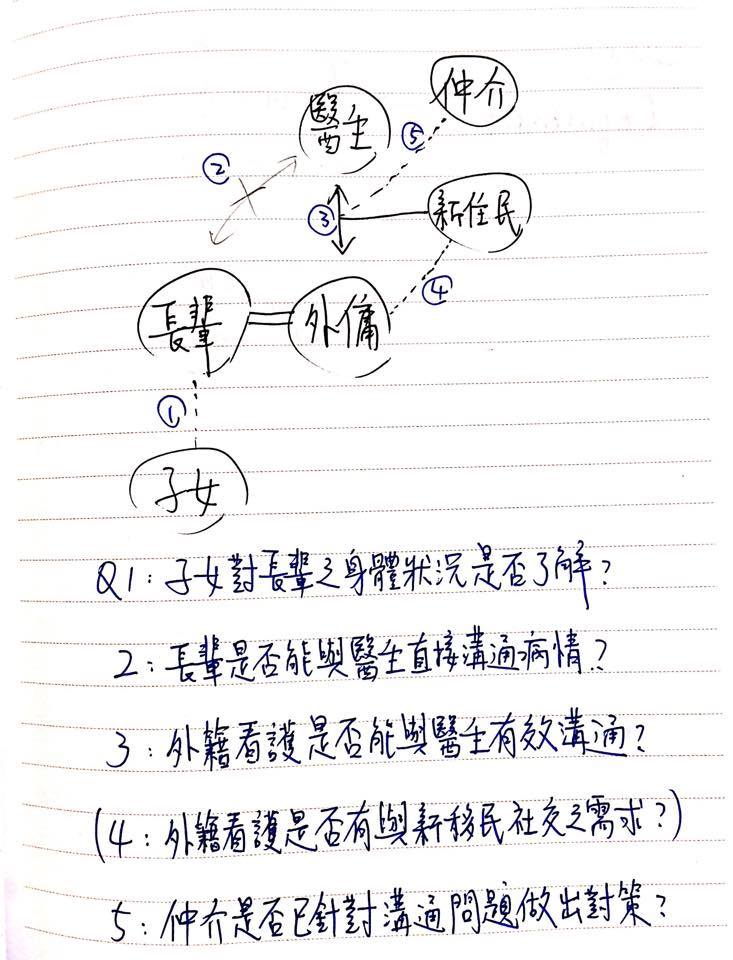 仲介
醫生
⑤
②
③
新住民
④
長輩
外傭
①
子女
Q1：子女對長輩之身體狀況是否了解？
2：長輩是否能與醫生直接溝通病情？
3：外籍看護是否能與醫生有效溝通？
(4：外籍看護是否有與新移民社交之需求？)
5：仲介是否已針對溝通問題做出對策？